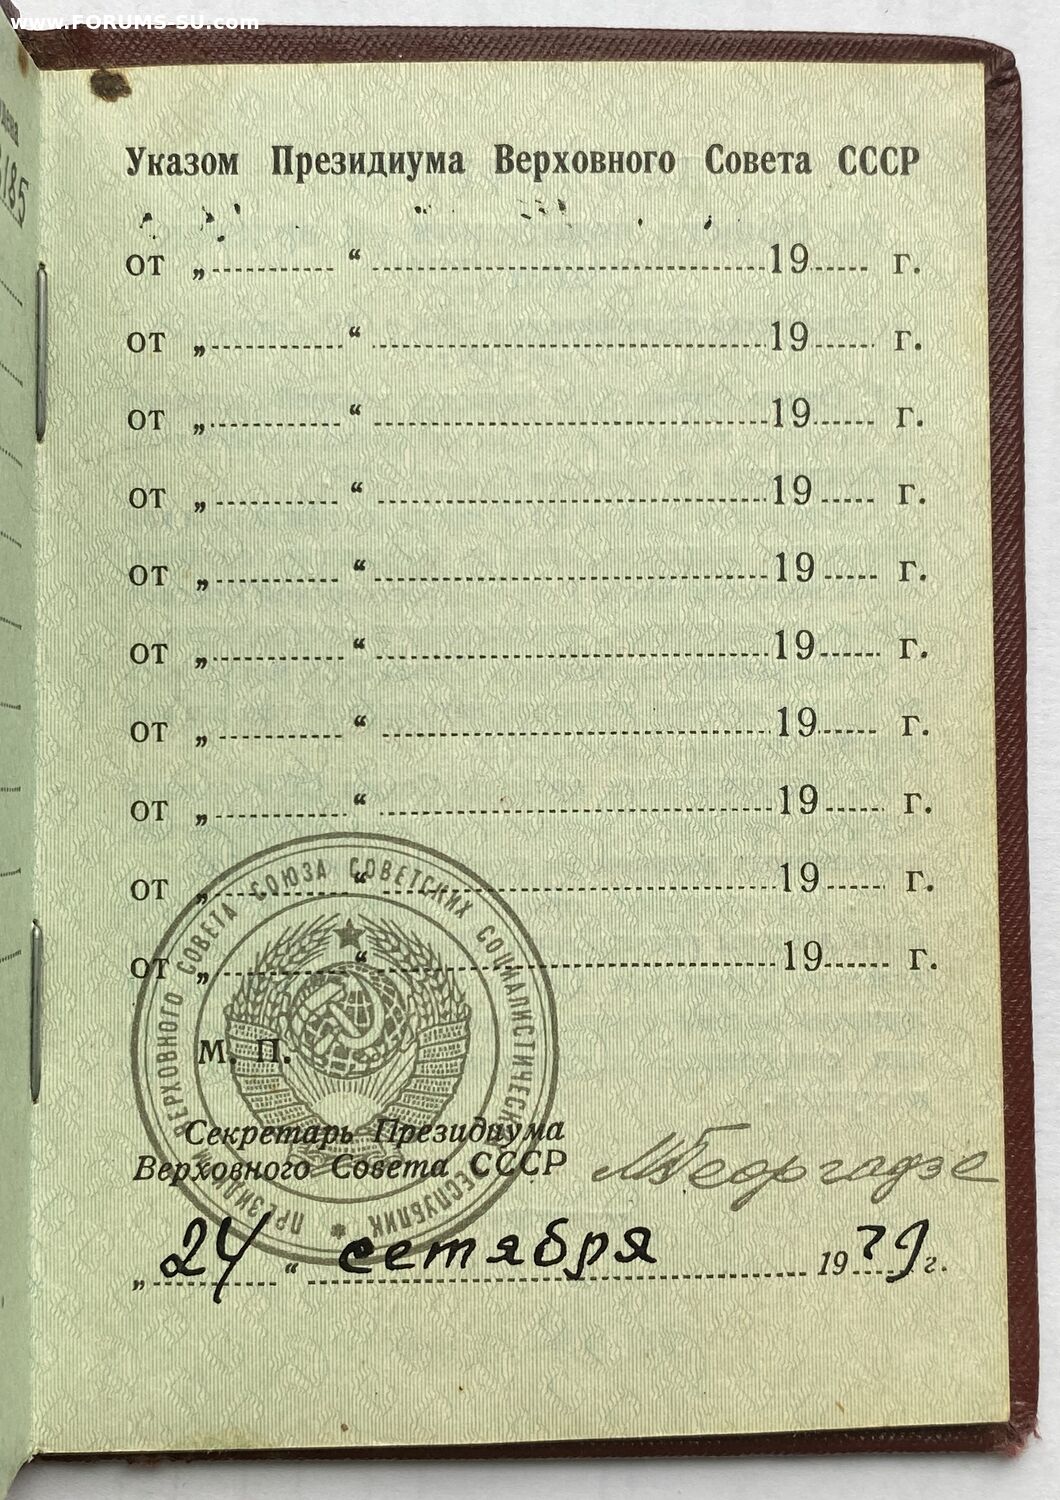 www.FORUMS-SU.com
185
Указом Президиума Верховного Совета СССР
от „ “ 19 г.
от „ “ 19 г.
от „ “ 19 г.
от „ “ 19 г.
от „ “ 19 г.
от „ “ 19 г.
от „ “ 19 г.
от „ “ 19 г.
от „ “ 19 г.
от „ “ 19 г.
ПРЕЗИДИУМ ВЕРХОВНОГО СОВЕТА СОЮЗА СОВЕТСКИХ СОЦИАЛИСТИЧЕСКИХ РЕСПУБЛИК
М. П.
Секретарь Президиума
Верховного Совета СССР МГеоргадзе
„24“ сетября 1979 г.